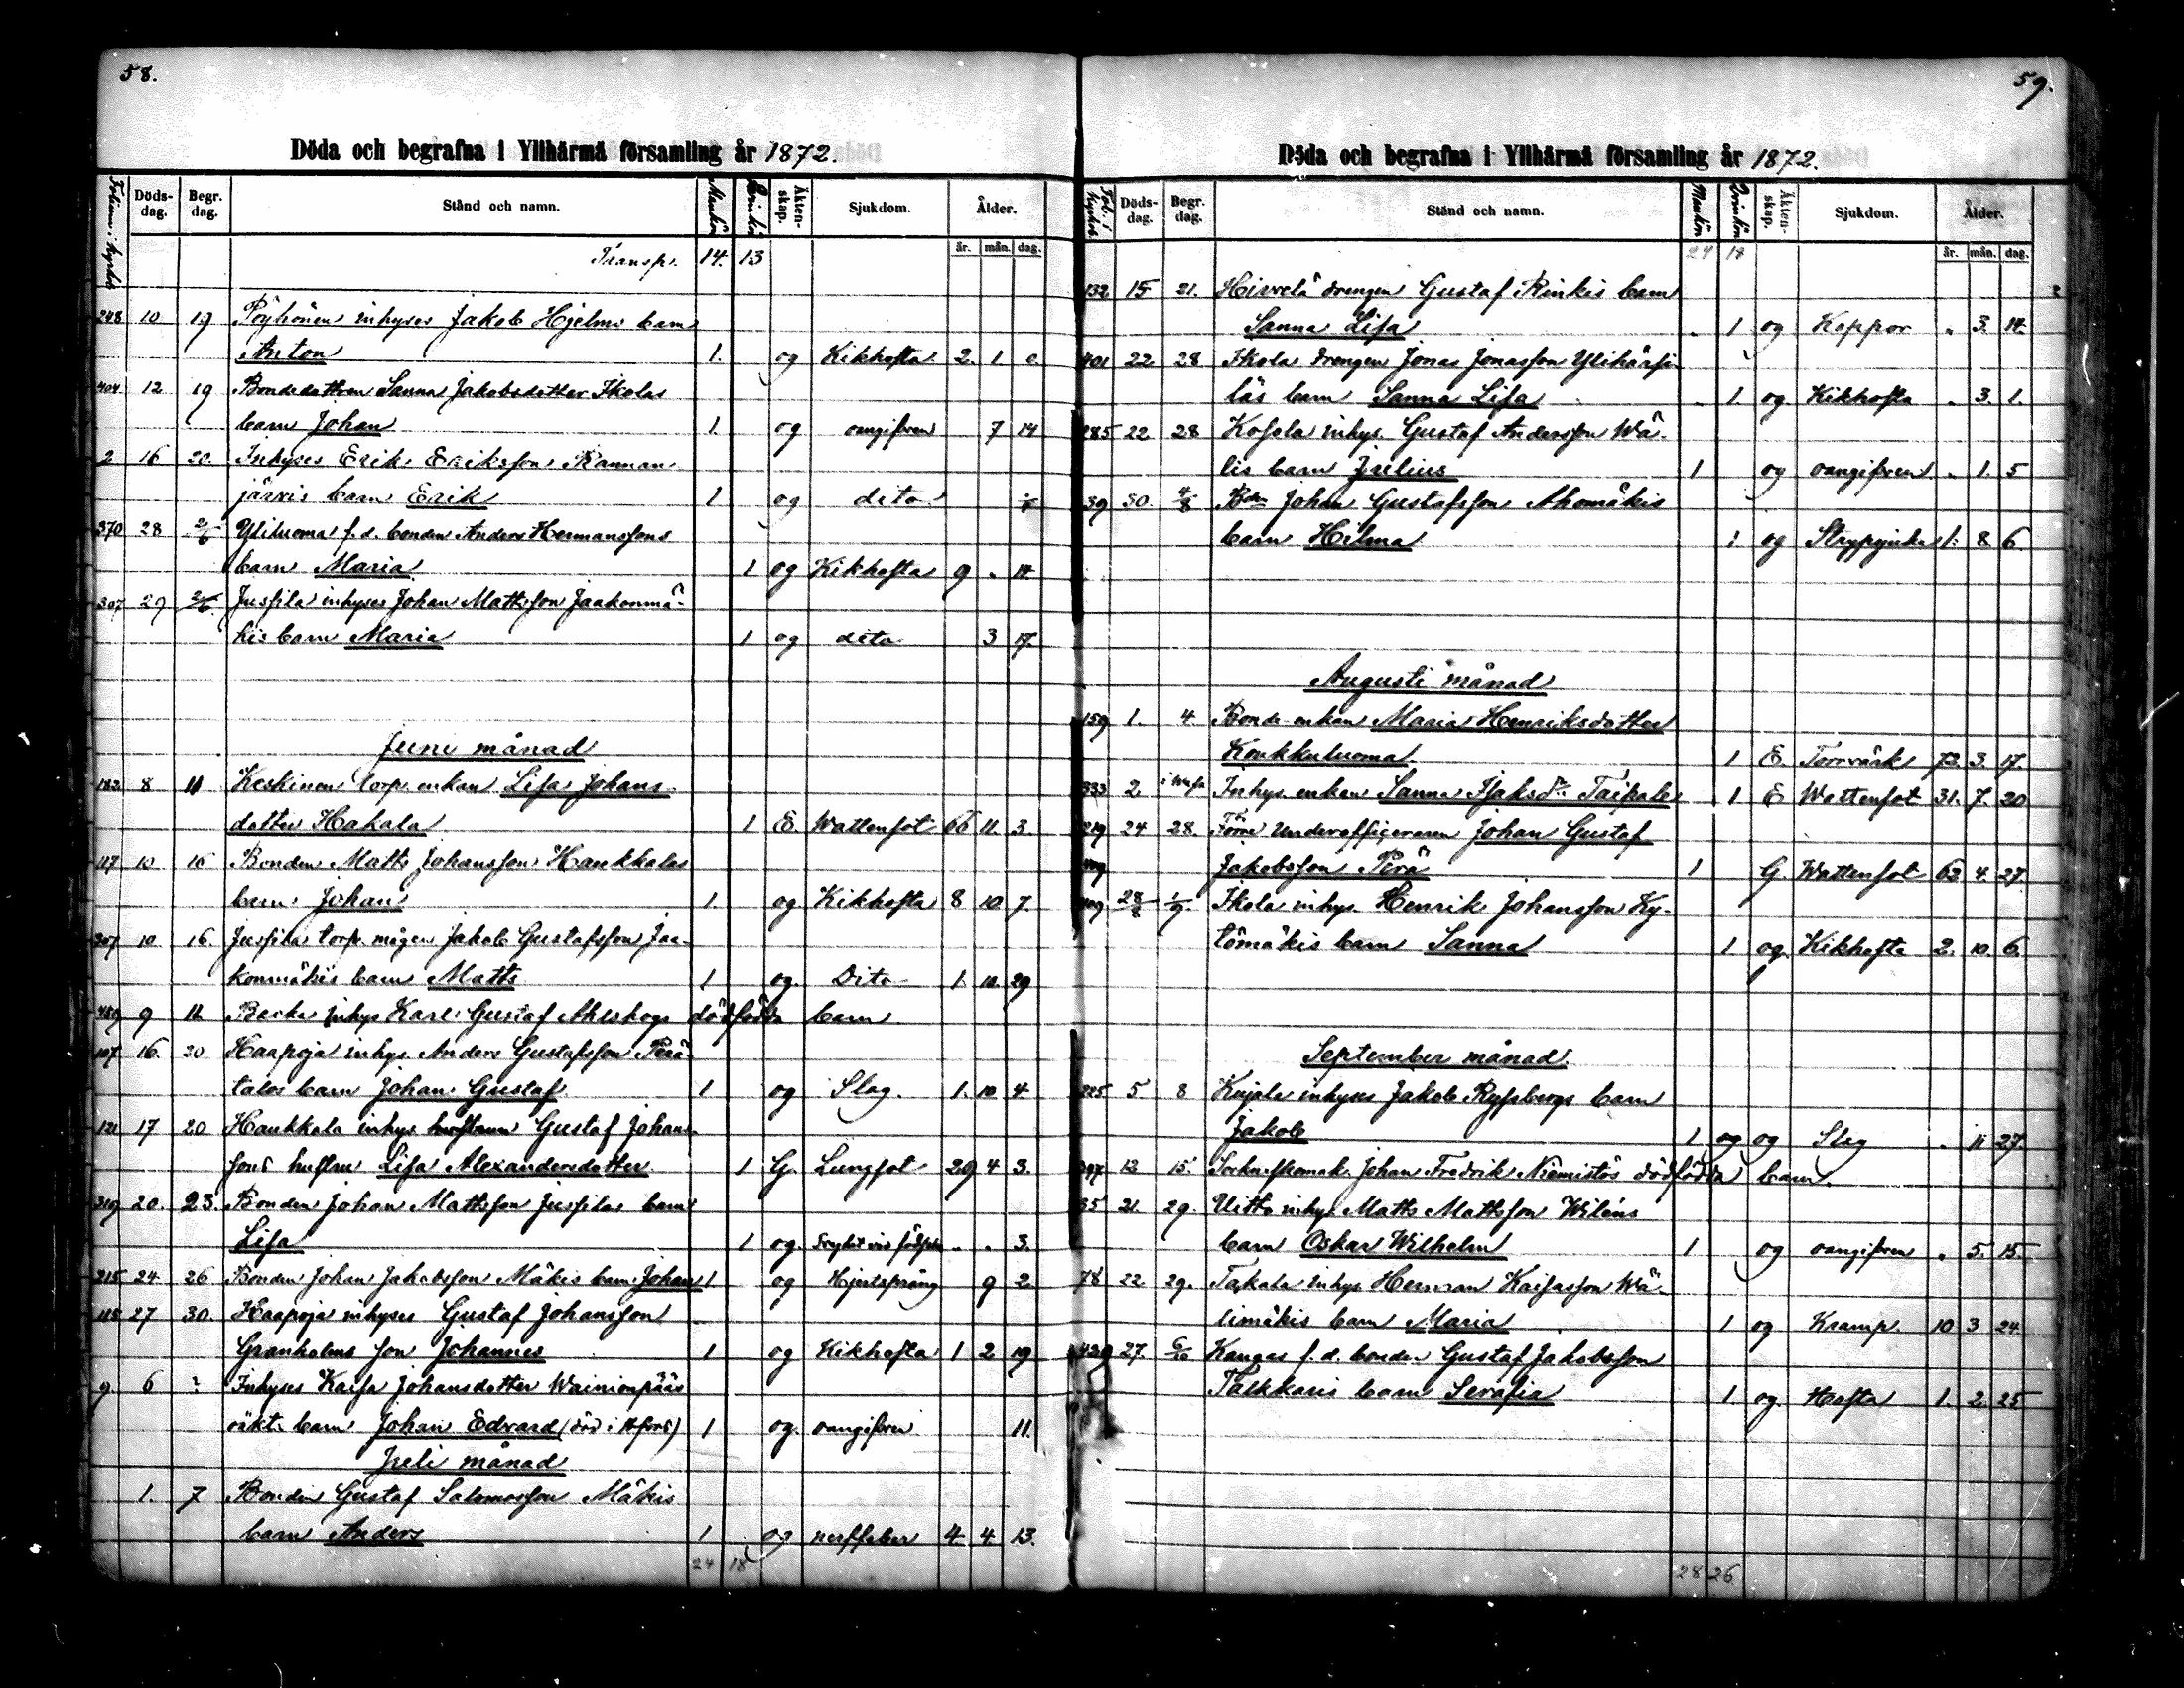 58.
Döda och begrafna i Ylihärmä församling år 1872.
Döds-dag. Begr. dag. Stånd och namn. Mankön Qvinkön Äkten-skap. Sjukdom. Ålder.
år. mån. dag.
Transp. 14. 13
248 10 19 Pöyhönen inhyses Jakob Hjelms barn
Anton 1. og Kikhosta 2. 1. e
404 12 19 Bondedottren Sanna Jakobsdotter Ikolas
barn Johan 1. og oangifven 7 14
2 16 20. Inhyses Erik Eriksson Rannan-
järvis barn Erik 1 og dito
370 28 2/6 Yliluoma f.d. bonden Anders Hermanssons
barn Maria 1 og Kikhosta 9 " 14
307 29 2/6. Jussila inhyses Johan Mattsson Jaakonmä-
kis barn Maria 1 og dito 3 17.
Juni månad
182 8 11 Keskinen torp. enkan Lisa Johans-
dotter Hakala 1 E Wattensot 66 11. 3.
117 10 16 Bonden Matts Johansson Haukkalas
barn Johan 1. og Kikhosta 8 10 7.
307 10. 16. Jussila torp. mågen Jakob Gustafsson Jaa-
konmäkis barn Matts 1 og. Dito 1. 10. 29
459 9 11 Backa inhys Karl Gustaf Ahlskogs dödfödda barn
107. 16. 30 Haapoja inhys. Anders Gustafsson Perä-
talos barn Johan Gustaf 1 og Slag. 1. 10 4
121 17 20 Haukkala inhys Gustaf Johans-
sons hustru Lisa Alexandersdotter 1 G. Lungsot 29 4 3.
319 20. 23. Bonden Johan Mattsson Jussilas barn
Lisa 1 og. " . 3.
215 24 26 Bonden Johan Jakobsson Mäkis barn Johan 1 og Hjertsprång 9 2.
118 27 30. Haapoja inhyses Gustaf Johansson
Granholms son Johannes 1 og Kikhosta 1 2 19
9. 6 ? Inhyses Kaisa Johansdotter Wainionpääs
oäkt. barn Johan Edvard (död i H:fors) 1 og. oangifven 11.
Juli månad
1. 7 Bonden Gustaf Salomonsson Mäkis
barn Anders 1 og nerffeber 4 4 13.
24 18
59.
Döda och begrafna i Ylihärmä församling år 1872.
Döds-dag. Begr. dag. Stånd och namn. Mankön Qvinkön Äkten-skap. Sjukdom. Ålder.
24 18 år. mån. dag.
132 15 21. Hirvelä drengen Gustaf Rinkis barn
Sanna Lisa " 1 og Koppor " 3. 14.
401 22 28 Ikola drengen Jonas Jonasson Ylihärsi-
läs barn Sanna Lisa " 1. og Kikhosta " 3. 1.
285 22 28 Kosola inhys. Gustaf Andersson Wä-
lis barn Julius 1 og oangifven " 1. 5
39 30. 4/8 Bdn Johan Gustafsson Ahomäkis
barn Helma 1 og Strypsjuka 1. 8 6.
Augusti månad
159 1. 4 Bonde enkan Maria Henriksdotter
Koukkuluoma 1 E. Torrvärk 73. 3. 17.
333 2 i Wasa Inhys. enkan Sanna Isaksdr Taipale 1 E Wattensot 31. 7. 20
219 24 28. Förre Underofficeraren Johan Gustaf
Jakobsson Perä 1 G. Wattensot 62 4. 27.
409 28/8 1/9. Ikola inhys. Henrik Johansson Ky-
tömäkis barn Sanna 1 og. Kikhosta 2. 10. 6.
September månad.
225 5 8 Kujala inhyses Jakob Ryssbergs barn
Jakob 1 og og Slag " 11 27.
397 12 15. Sockneskomak. Johan Fredrik Niemistös dödfödda barn.
35 21. 29. Uitto inhys Matts Mattsson Wiléns
barn Oskar Wilhelm 1 og oangifven " 5. 15.
78 22 29. Takala inhys. Herman Kaisasson Wä-
limäkis barn Maria 1 og Kramp. 10 3 24
429 27. 6/10 Kangas f.d. bonden Gustaf Jakobsson
Talkkaris barn Serafia 1 og. Hosta 1. 2. 25
28 26